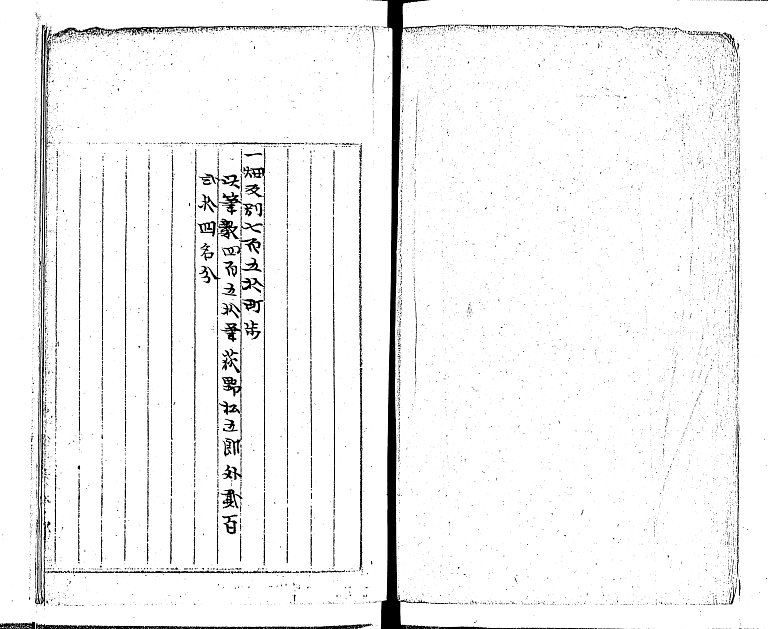 一畑反別七百五拾町歩
此筆数四百五拾筆荻野松五郎外貳百
弐拾四名分